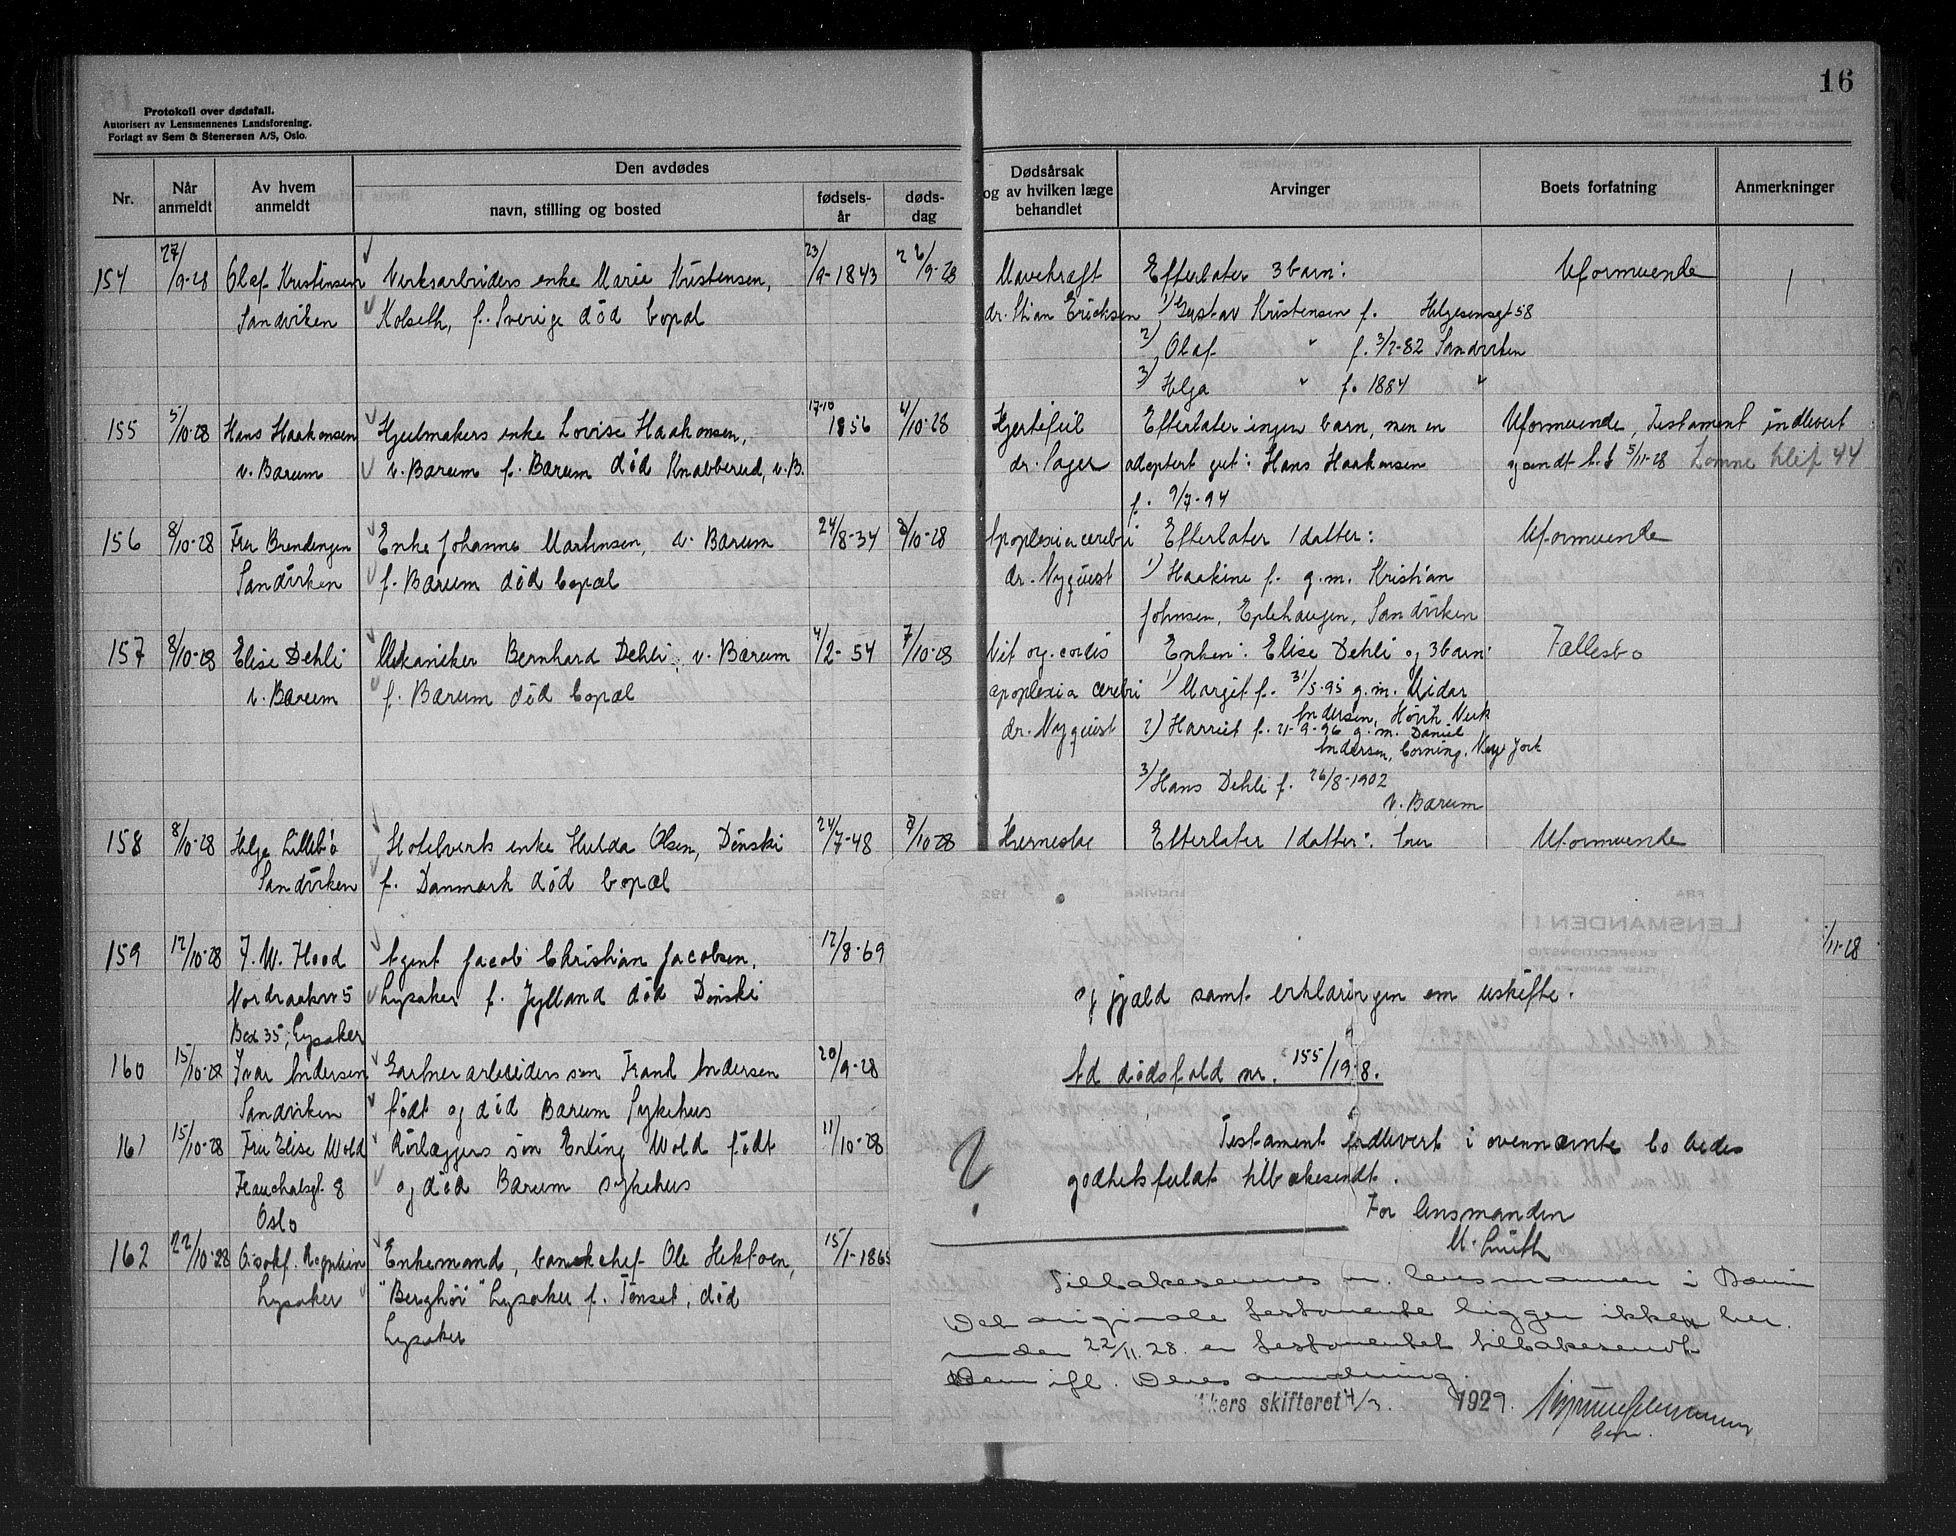 16
Protokoll over dødsfall.
Autorisert av Lensmennenes Landsforening.
Forlagt av Sem & Stenersen A/S, Oslo.
Nr.
Når anmeldt
Av hvem anmeldt
Den avdødes
navn, stilling og bosted
fødsels-år
døds-dag
Dødsårsak og av hvilken læge behandlet
Arvinger
Boets forfatning
Anmerkninger
154 27/9-28 Olaf Kristensen Verksarbeiders enke Marie Kristensen, 23/9-1843 26/9-28 Mavekræft Efterlater 3 barn: Uformuende
Sandviken Kolseth, f. Sverige død bopæl dr. Stian Ericksen 1) Gustav Kristensen f. Helgesensgt 58
2) Olaf " f. 3/7-82 Sandviken
3) Helga " f. 1884 "
155 5/10-28 Hans Haakonsen Hjulmakers enke Lovise Haakonsen, 17-10 1856 4/10-28 Hjertefeil Efterlater ingen barn, men en Uformuende, Testament indlevert
v. Bærum v. Bærum f. Bærum død Knabberud, v. B. dr. adoptert gut: Hans Haakonsen og sendt 5/11-28 44
f. 9/7-94
156 8/10-28 Fru Brendengen Enke Johanne Martinsen, v. Bærum 24/8-34 8/10-28 Apoplexia cerebri Efterlater 1 datter: Uformuende
Sandviken f. Bærum død bopæl dr. Nyquist 1) Haakine f. g.m. Kristian
Johnsen, Eplehaugen, Sandviken
157 8/10-28 Elise Dehli Mekaniker Bernhard Dehli, v. Bærum 4/2-54 7/10-28 Vit. org. cordis Enken: Elise Dehli og 3 barn: Fællesbo
v. Bærum f. Bærum død bopæl apoplexia cerebri 1) Margit f. 31/5-95 g.m. Vidar
Andersen, Høvik Verk
dr. Nyquist 2) Harriet f. 21-9-96 g.m. Daniel
Andersen, Corning, New York
3) Hans Dehli f. 26/8-1902
v. Bærum
158 8/10-28 Helga Lillebø Hotelverts enke Hulda Olsen, Dønski 24/7-48 8/10-28 Hjerneslag Efterlater 1 datter: Uformuende
Sandviken f. Danmark død bopæl
159 12/10-28 F. W. Hood Agent Jacob Christian Jacobsen, 12/8-69 /11-28
Nordraaksv 5 Lysaker f. Jylland død Dønski
Box 35, Lysaker
160 15/10-28 Ivar Andersen Gartnerarbeiders søn Frank Andersen 20/9-28
Sandviken født og død Bærum Sykehus
161 15/10-28 Fru Elise Wold Rørlæggers søn Erling Wold født 11/10-28
Frauchatsgt. 8 og død Bærum sykehus
Oslo
162 22/10-28 Enkemand, banekchef Ole Hektoen, 15/1-1865
Lysaker "Berghøi" Lysaker f. Tønset, død
Lysaker
og gjæld samt erklæringen om uskifte.
Ad dødsfald nr. 155/19-8.
Testament indlevert i ovennævnte bo bedes
godhetsfuldt tilbakesendt.
For lensmanden
Tilbakesendes n. lensmannen i Bærum
Det originale testamente ligger ikke her.
under 22/11.28. er testamentet tilbakesendt
Dem ifl. Deres anmodning.
Akers skifterett 4/3. 1929.
FRA
LENSMANDEN I
EKSPEDITIONSTID